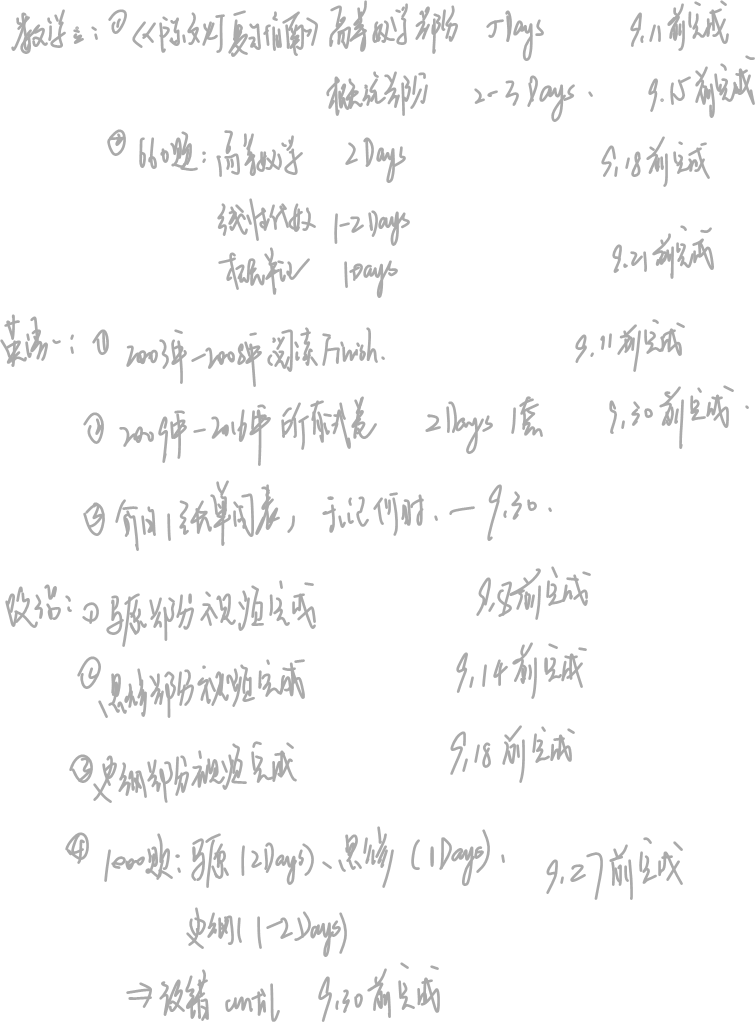 数学三：①《陈文灯复习指南》高等数学部份 5Days 9.11前完成
概统部份 2-3Days. 9.15前完成
② 660题：高等数学 2Days 9.18前完成
线性代数 1-2Days
概率论 1Days 9.21前完成
英语一：① 2003年-2008年阅读Finish. 9.11前完成
② 2009年-2016年所有试卷 2Days 1套 9.30前完成.
③ 每日1张单词表， — 9.30.
政治：①马原部份视频完成 9.8前完成
②思修部份视频完成 9.14前完成
③史纲部份视频完成 9.18前完成
④ 1000题：马原(2Days)、思修(1Days). 9.27前完成
史纲(1-2Days)
⇒ 改错 until 9.30前完成